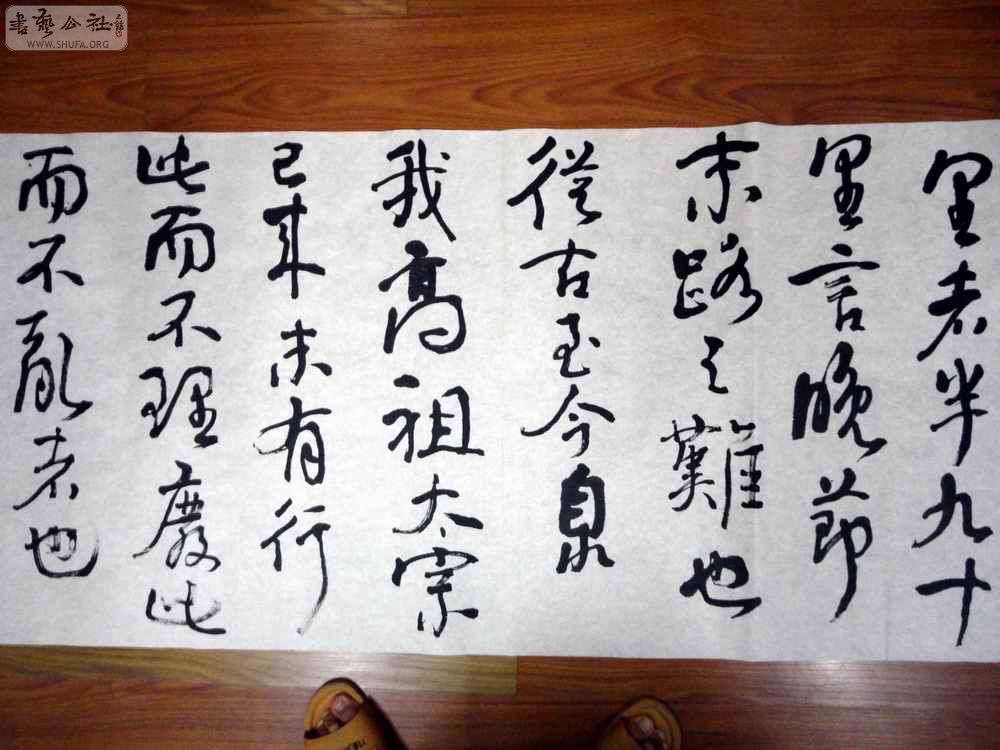 里者半九十
里言晚節
末路之難也
從古至今臮
我高祖太宗
已來未有行
此而不理廢此
而不亂者也
書藝公社
WWW.SHUFA.ORG